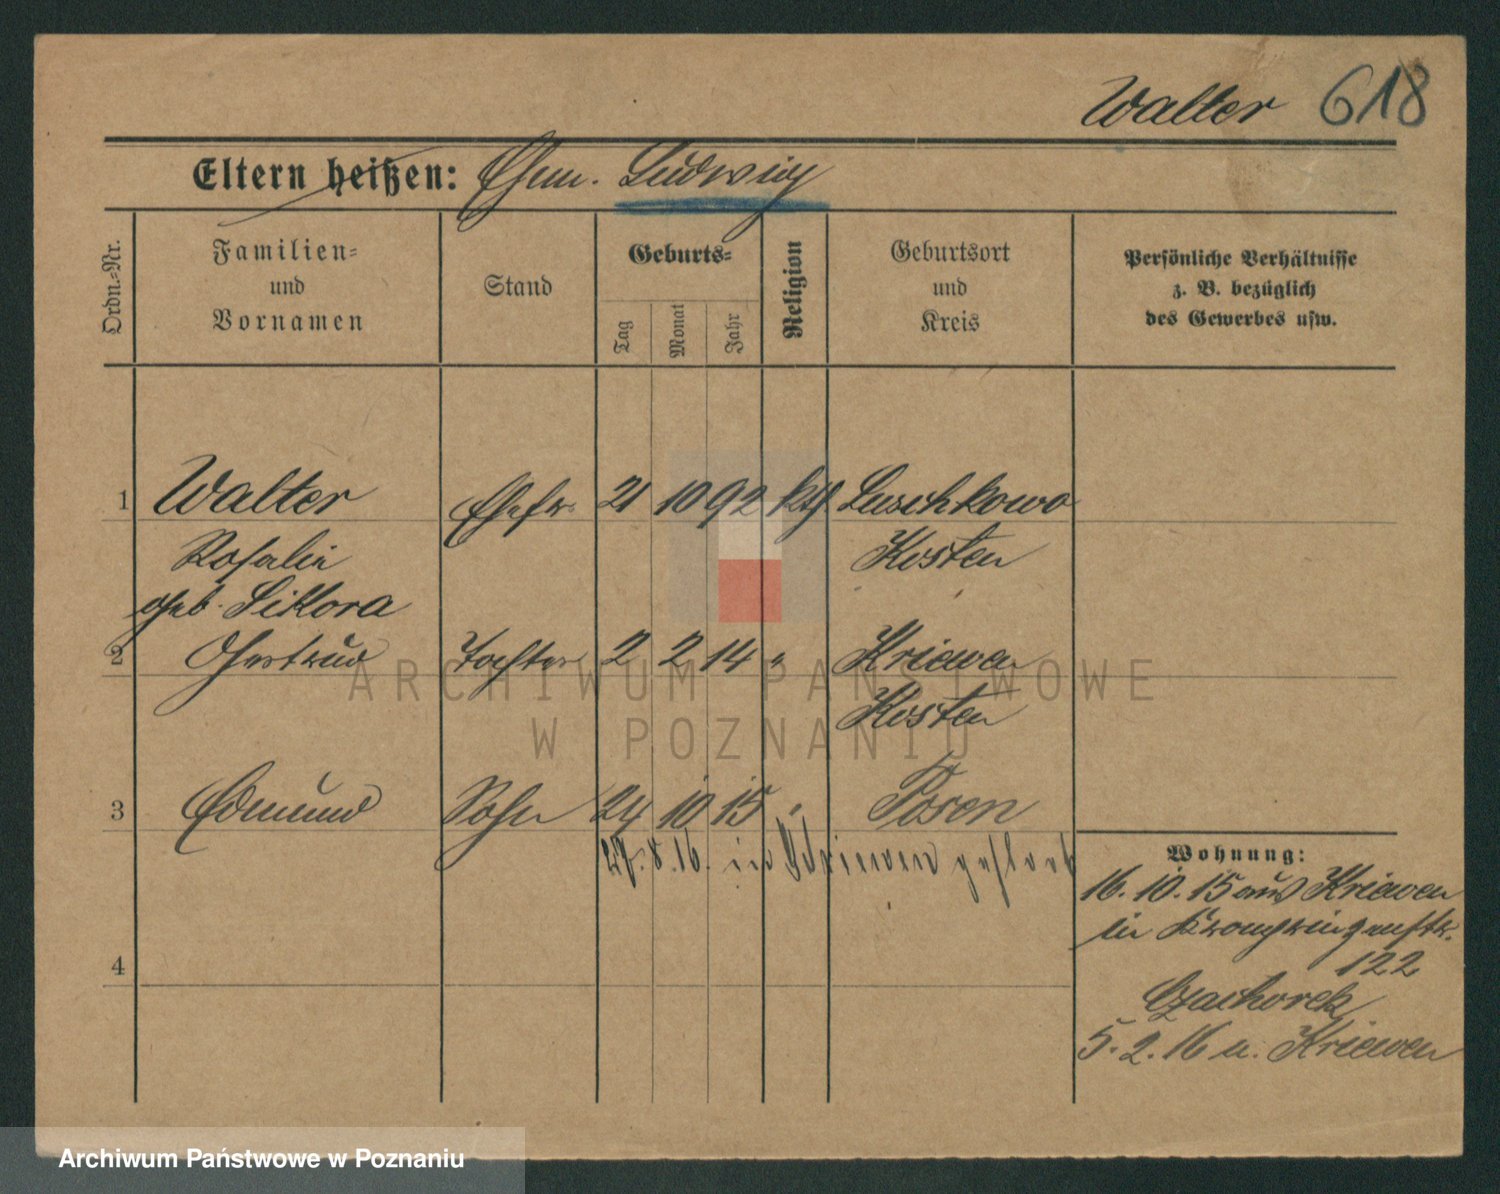 Walter 618
Eltern heißen: Ehem. Ludwig
Ordn.=Nr.
Familien=
und
Vornamen
Stand
Geburts=
Tag
Monat
Jahr
Religion
Geburtsort
und
Kreis
Persönliche Verhältnisse
z. B. bezüglich
des Gewerbes usw.
1 Walter Ehefr. 21 10 92 kth Luschkowo
Rosalie Kosten
geb. Sikora
2 Gertrud Tochter 2 2 14 " Kriewen
Kosten
3 Edmund Sohn 24 10 15 " Posen
27. 8. 16. in
4
Wohnung:
16. 10. 15 aus Kriewen
in Kronprinzenstr.
122
Czachorek
5. 2. 16 n. Kriewen
ARCHIWUM PAŃSTWOWE
W POZNANIU
Archiwum Państwowe w Poznaniu